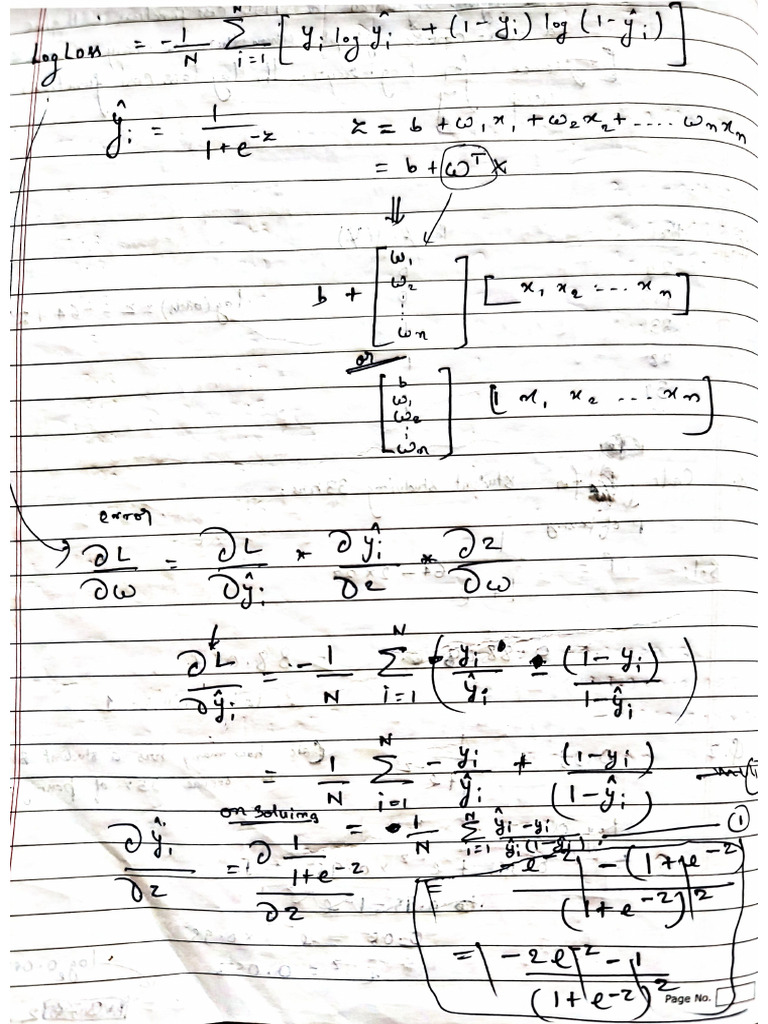 Log Loss = -1/N Σ_{i=1}^{N} [ y_i log ŷ_i + (1-y_i) log (1-ŷ_i) ]
ŷ_i = 1/(1+e^{-z})    z = b + ω_1 x_1 + ω_2 x_2 + .... ω_n x_n
= b + ω^T X
⇓
b + [ ω_1 ω_2 ⋮ ω_n ] [ x_1 x_2 .... x_n ]
or
[ b ω_1 ω_2 ⋮ ω_n ] [ 1 x_1 x_2 .... x_n ]
error
∂L/∂ω = ∂L/∂ŷ_i * ∂ŷ_i/∂z * ∂z/∂ω
↓
∂L/∂ŷ_i = -1/N Σ_{i=1}^{N} ( y_i/ŷ_i - (1-y_i)/(1-ŷ_i) )
= 1/N Σ_{i=1}^{N} - y_i/ŷ_i + (1-y_i)/(1-ŷ_i)
on solving = 1/N Σ_{i=1}^{N} (ŷ_i - y_i)/(ŷ_i(1-ŷ_i)) ——— ①
∂ŷ_i/∂z = ∂ (1/(1+e^{-z}))/∂z = (-e^{-z} - (1+e^{-z}))/(1+e^{-z})^2
= (-2e^{-z} - 1)/(1+e^{-z})^2
Page No.